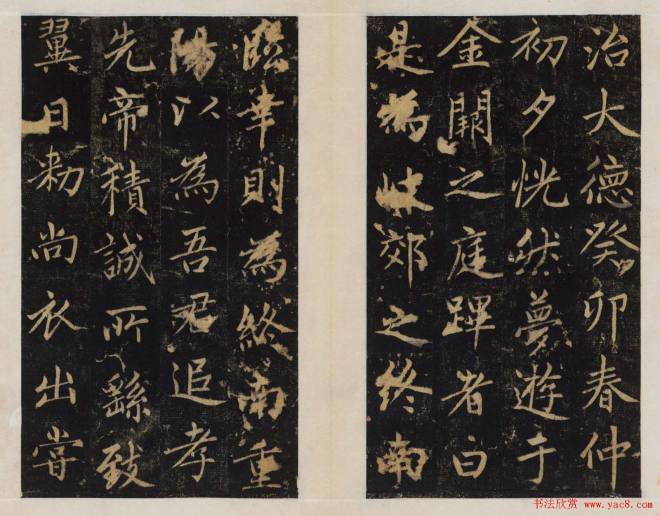 治大德癸卯春仲
初夕恍然夢遊于
金闕之庭蹕者白
是為岐郊之終南
臨幸則為終南重
陽以為吾君追孝
先帝積誠所繇致
翼日勑尚衣出嘗
书法欣赏 www.yac8.com